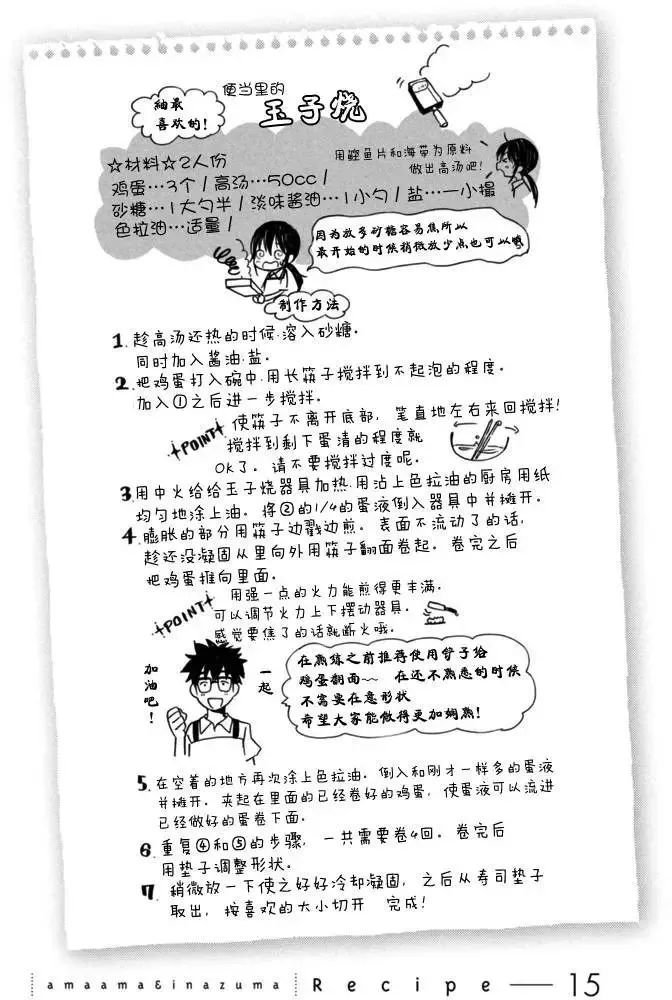 便当里的
紬最
喜欢的!
玉子烧
☆材料☆2人份
鸡蛋…3个/高汤…50cc/
砂糖…1大勺半/淡味酱油…1小勺/盐…一小撮
色拉油…适量/
用鲣鱼片和海带为原料
做出高汤吧!
因为放多砂糖容易焦所以
最开始的时候稍微放少点也可以哦
制作方法
1.趁高汤还热的时候.溶入砂糖。
同时加入酱油.盐。
2.把鸡蛋打入碗中.用长筷子搅拌到不起泡的程度。
加入①之后进一步搅拌。
POINT
使筷子不离开底部,笔直地左右来回搅拌!
搅拌到剩下蛋清的程度就
OK了。请不要搅拌过度呢。
3.用中火给给玉子烧器具加热.用沾上色拉油的厨房用纸
均匀地涂上油。将②的1/4的蛋液倒入器具中并摊开。
4.膨胀的部分用筷子边戳边煎。表面不流动了的话,
趁还没凝固从里向外用筷子翻面卷起。卷完之后
把鸡蛋推向里面。
POINT
用强一点的火力能煎得更丰满。
可以调节火力上下摆动器具。
感觉要焦了的话就断火哦。
一起
加油吧!
在熟练之前推荐使用铲子给
鸡蛋翻面~~ 在还不熟悉的时候
不需要在意形状
希望大家能做得更加娴熟!
5.在空着的地方再次涂上色拉油。倒入和刚才一样多的蛋液
并摊开。夹起在里面的已经卷好的鸡蛋,使蛋液可以流进
已经做好的蛋卷下面。
6.重复④和⑤的步骤,一共需要卷4回。卷完后
用垫子调整形状。
7.稍微放一下使之好好冷却凝固,之后从寿司垫子
取出,按喜欢的大小切开 完成!
amaama&inazuma Recipe — 15